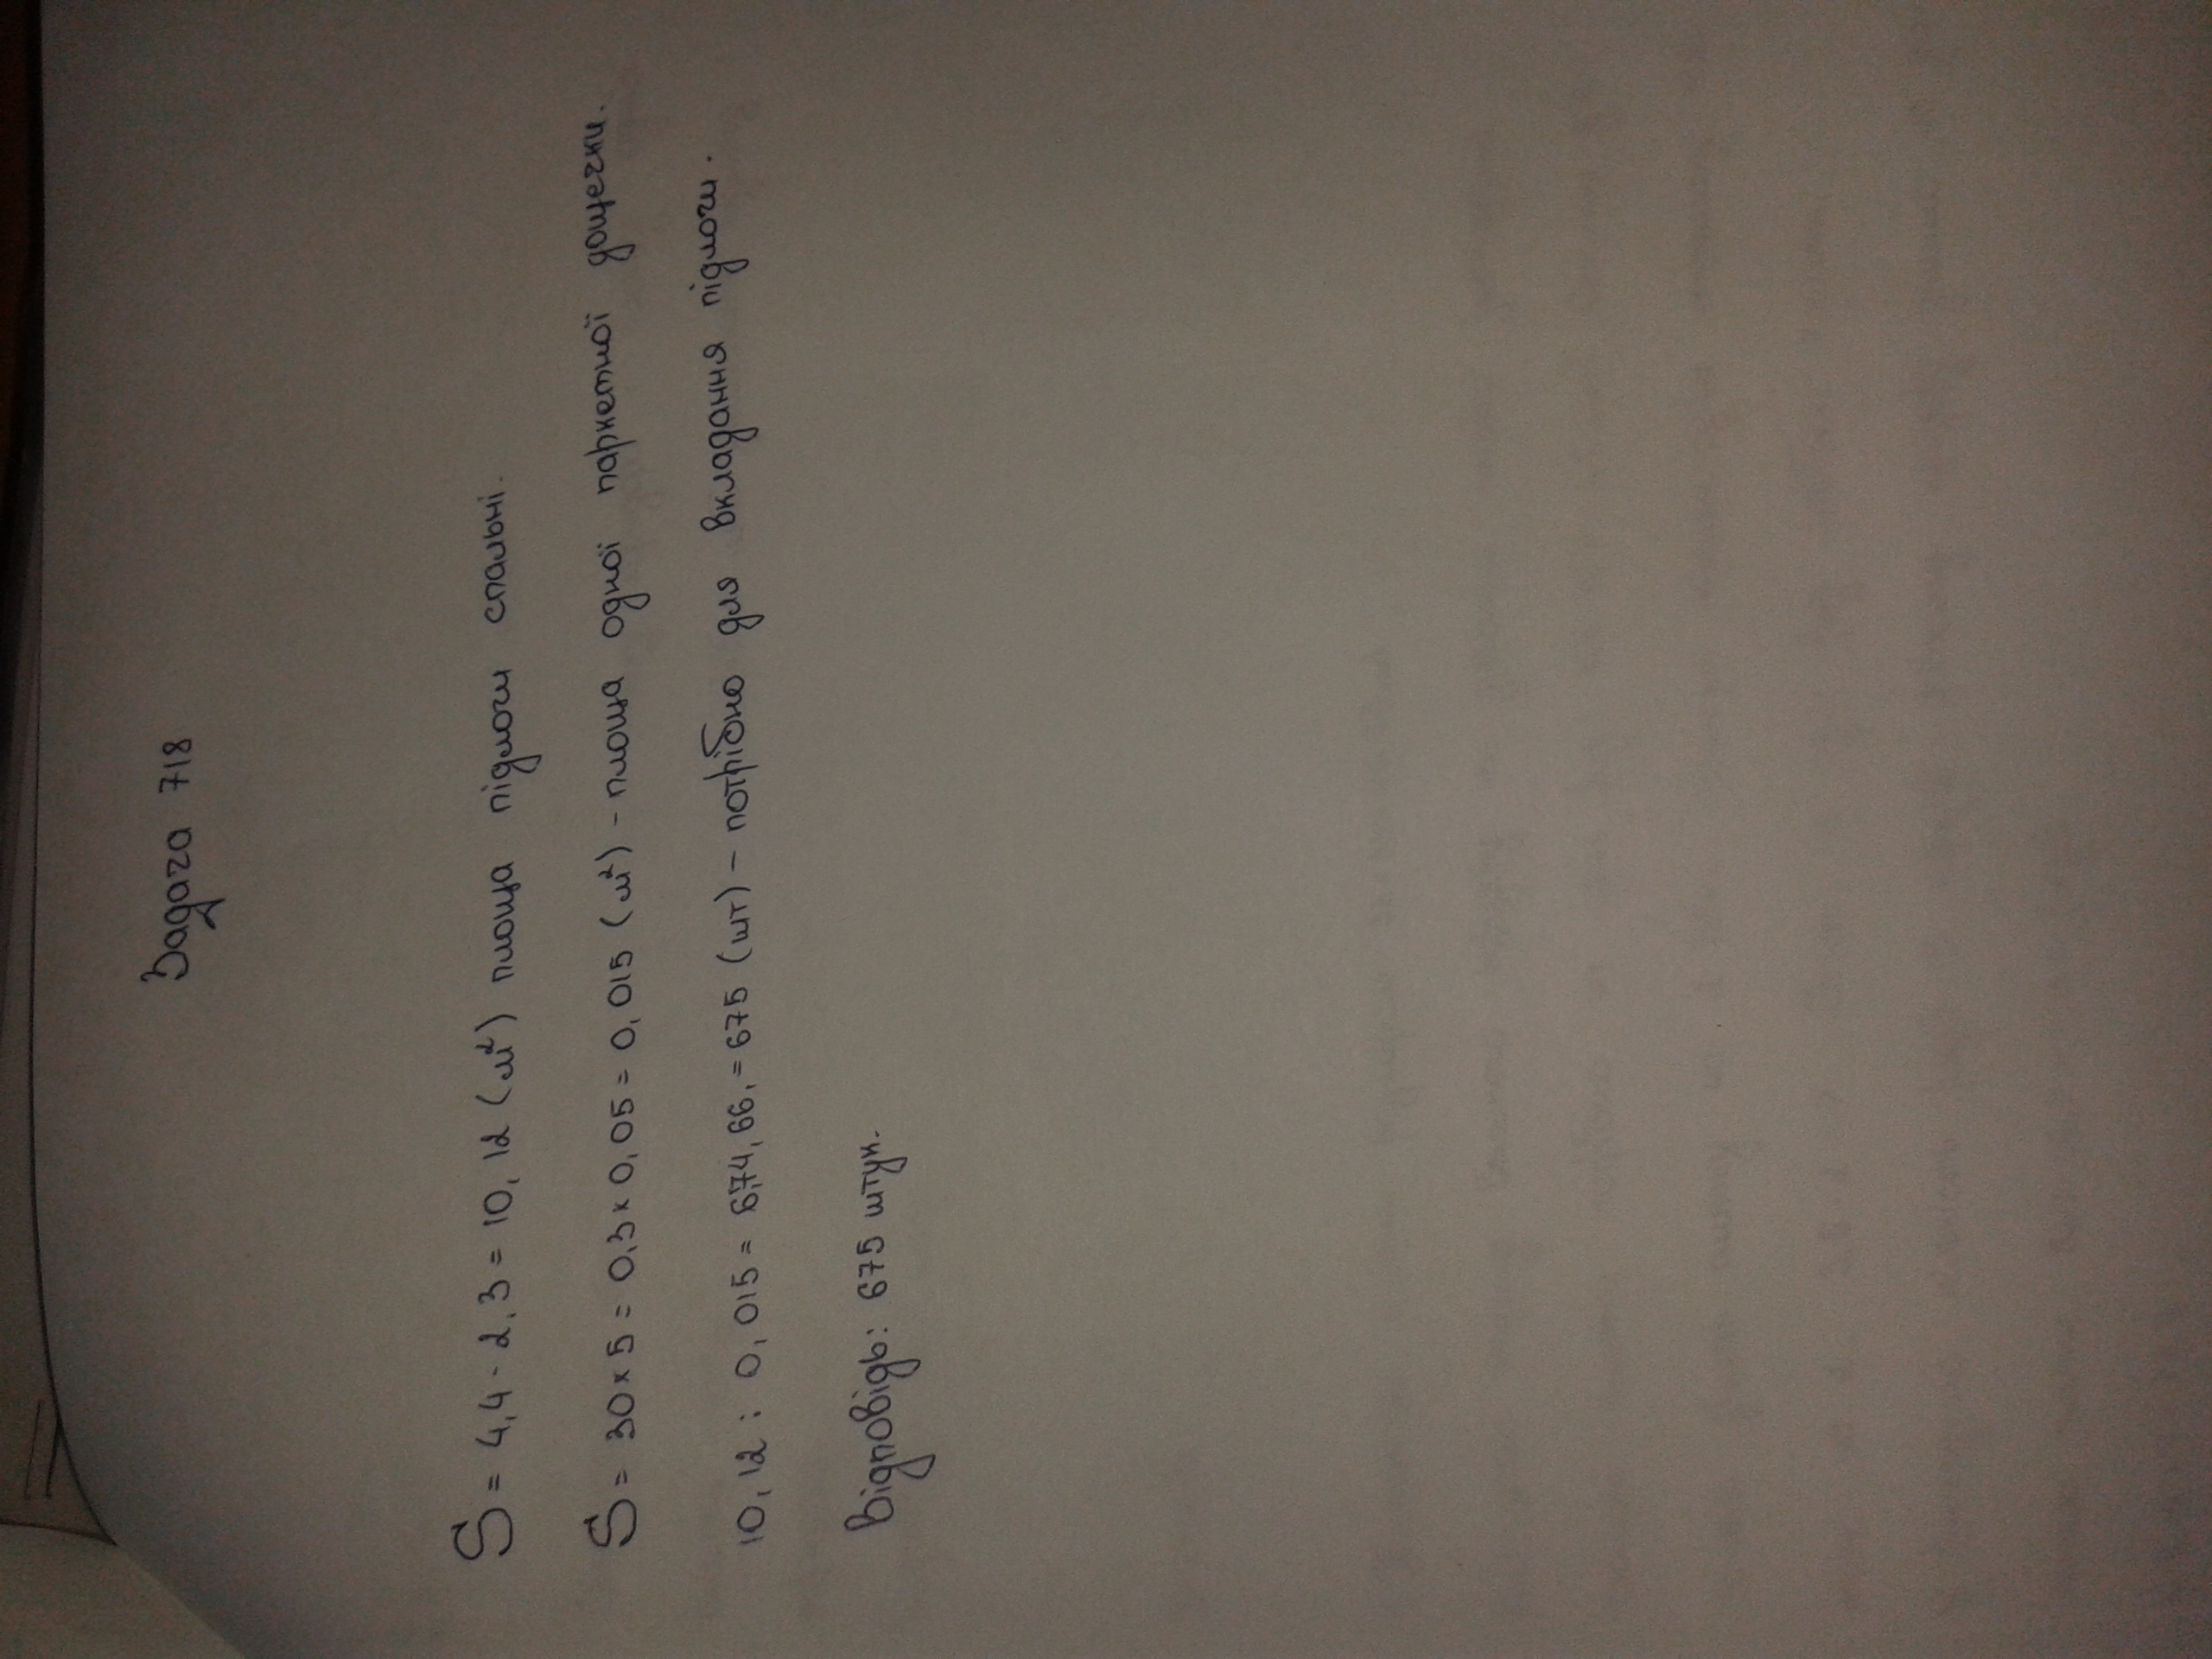 Задача 718
S = 4,4 · 2,3 = 10,12 (м²) площа підлоги спальні.
S = 30 × 5 = 0,3 × 0,05 = 0,015 (м²) - площа одної паркетної дощечки.
10,12 : 0,015 = 674,66, = 675 (шт) – потрібно для вкладання підлоги.
Відповідь: 675 штук.